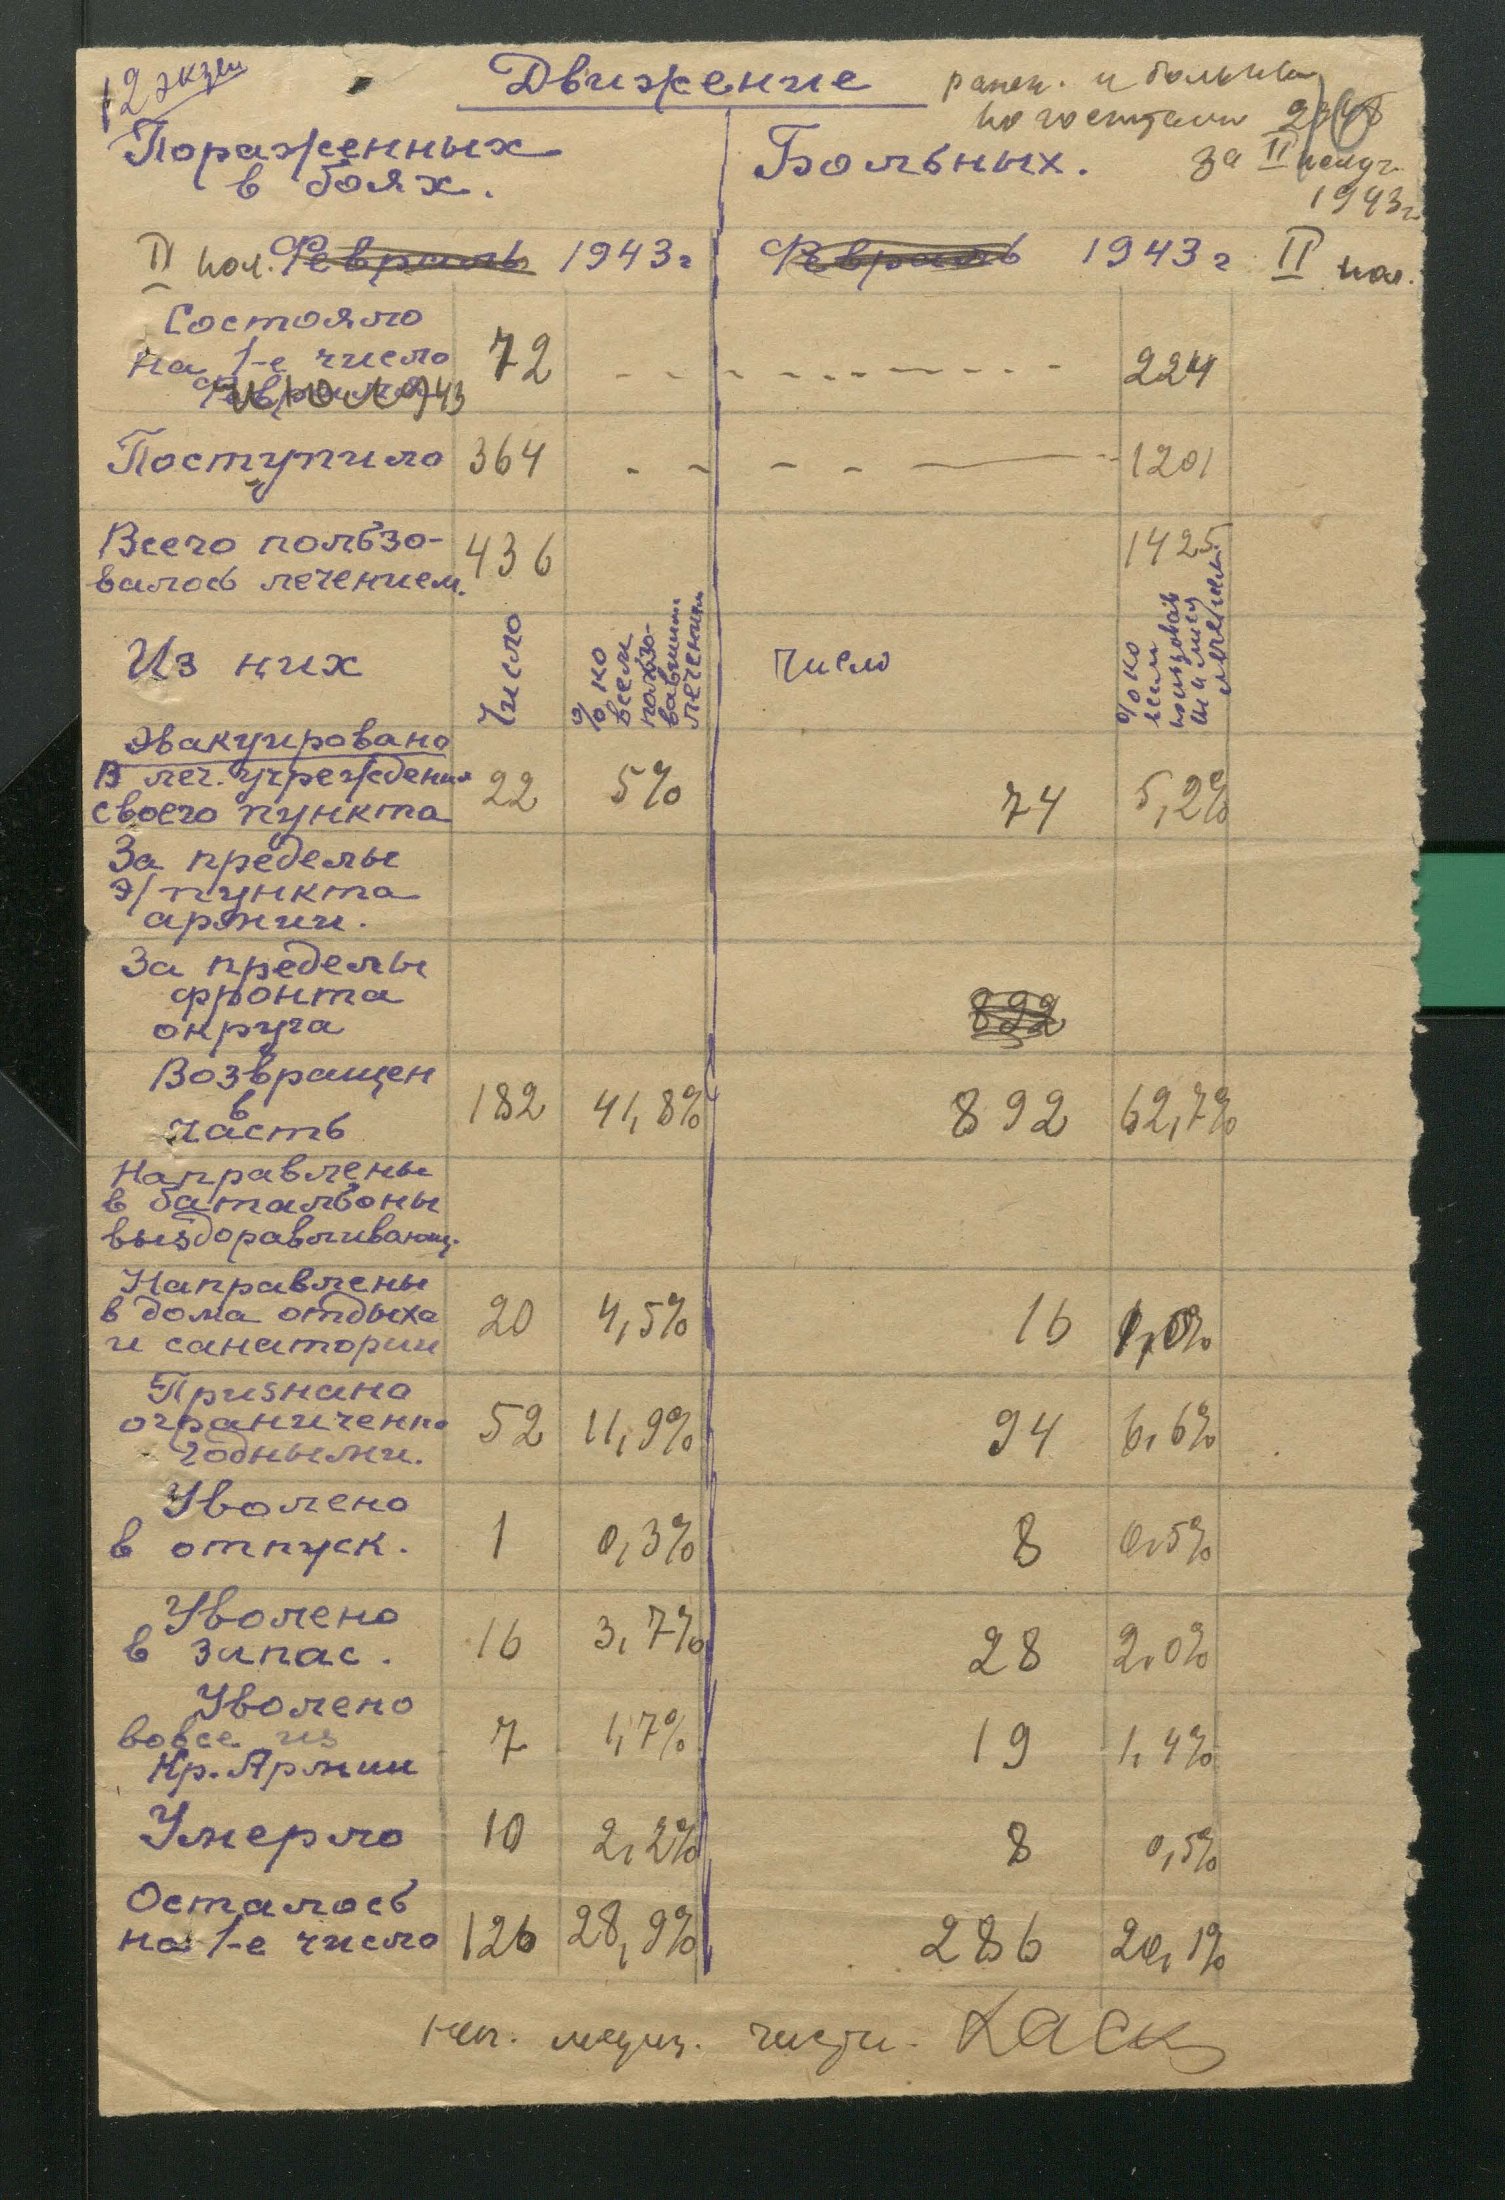 2 экзем
Движение ранен. и больных
по госпиталю
за II полуг.
1943г
Пораженных
в боях.
Больных.
II пол. Февраль 1943г
Февраль 1943г II пол.
Состояло
на 1-е число 72 224
июля 43
Поступило 364 1201
Всего пользо-
валось лечением. 436 1425
Из них
Число
% ко
всем
пользо-
вавшим.
лечением
число
% ко
всем
пользовав
шимся
лечением
Эвакуировано
В леч. учреждения
своего пункта 22 5% 74 5,2%
За пределы
э/пункта
армии.
За пределы
фронта
округа 892
Возвращен
в
часть 182 41,8% 892 62,7%
Направлены
в батальоны
выздоравливающ.
Направлены
в дома отдыха
и санатории 20 4,5% 16 1,0%
Признано
ограниченно
годными. 52 11,9% 94 6,6%
Уволено
в отпуск. 1 0,3% 8 0,5%
Уволено
в запас. 16 3,7% 28 2,0%
Уволено
вовсе из
Кр. Армии 7 1,7% 19 1,4%
Умерло 10 2,2% 8 0,5%
Осталось
на 1-е число 126 28,9% 286 20,1%
нач. медиц. части.